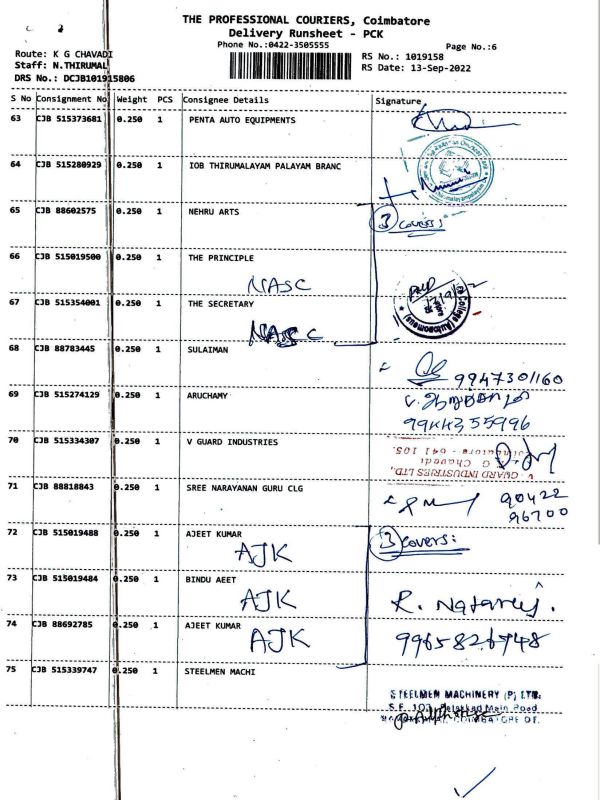 THE PROFESSIONAL COURIERS, Coimbatore
Delivery Runsheet - PCK
Phone No.:0422-3505555
Page No.:6
Route: K G CHAVADI
Staff: N.THIRUMAL
DRS No.: DCJB101915806
RS No.: 1019158
RS Date: 13-Sep-2022
S No Consignment No Weight PCS Consignee Details Signature
63 CJB 515373681 0.250 1 PENTA AUTO EQUIPMENTS
64 CJB 515280929 0.250 1 IOB THIRUMALAYAM PALAYAM BRANC
65 CJB 88602575 0.250 1 NEHRU ARTS
3 covers:
66 CJB 515019500 0.250 1 THE PRINCIPLE
NASC
67 CJB 515354001 0.250 1 THE SECRETARY
NASC
College (Autonomous)
68 CJB 88783445 0.250 1 SULAIMAN
9947301160
69 CJB 515274129 0.250 1 ARUCHAMY
9944355996
70 CJB 515334307 0.250 1 V GUARD INDUSTRIES
V GUARD INDUSTRIES LTD.,
K G Chavadi
Coimbatore - 641 105.
71 CJB 88818843 0.250 1 SREE NARAYANAN GURU CLG
90422
96700
72 CJB 515019488 0.250 1 AJEET KUMAR
AJK
3 covers:
73 CJB 515019484 0.250 1 BINDU AEET
AJK
R. Nataraj.
74 CJB 88692785 0.250 1 AJEET KUMAR
AJK
9965826748
75 CJB 515339747 0.250 1 STEELMEN MACHI
STEELMEN MACHINERY (P) LTD.
S.F. 103, Palakkad Main Road
COIMBATORE